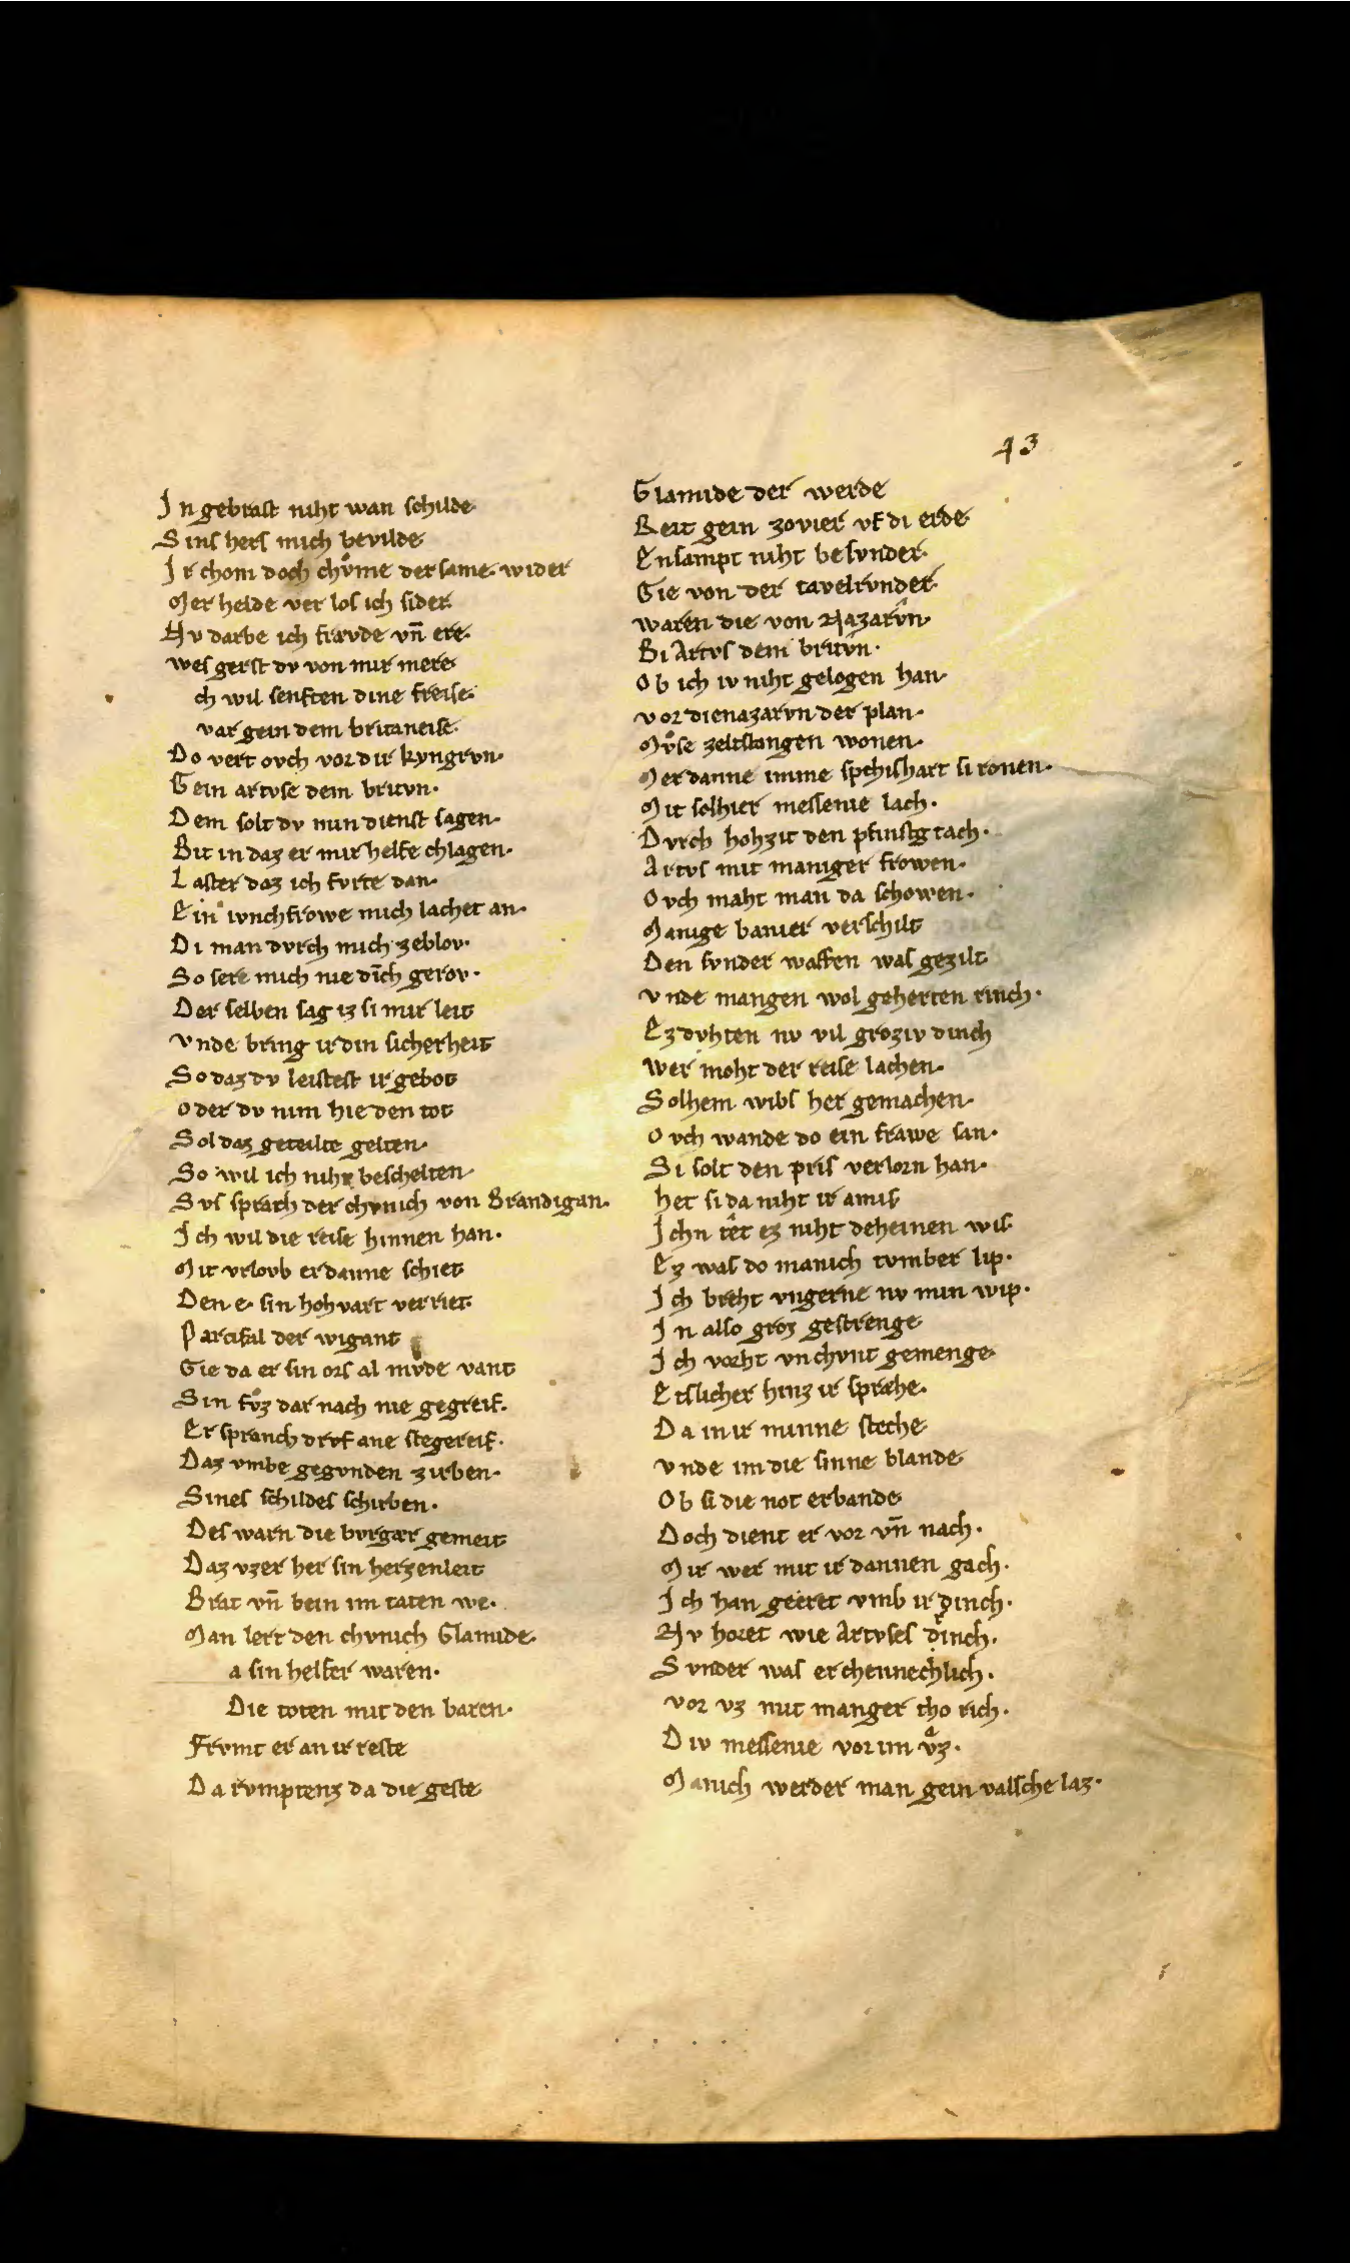 43
In gebrast niht wan schilde
Sins hers mich bevilde
Ir chom doch chvͦme der same wider
Mer helde ver los ich sider
Nv darbe ich frævde vn̄ ere
wes gerst dv von mir mere
ch wil senften dine freise
var gein dem britaneise
Do vert ovch vor dir kyngrvn
Gein artvse dem britvn
Dem solt dv min dienst sagen
Bit in daz er mir helfe chlagen
Laster daz ich fvrte dan
Ein ivnchfrowe mich lachet an
Di man dvrch mich zeblov
So sere mich nie dīch gerov
Der selben sag iz si mir leit
vnde bring ir din sicherheit
So daz dv leistest ir gebot
oder dv nim hie den tot
Sol daz geteilte gelten
So wil ich niht beschelten
Svs sprach der chvnich von Brandigan
Ich wil die reise hinnen han
Mit vrlovb er danne schiet
Den e sin hohvart verriet
Parcifal der wigant
Gie da er sin ors al mvde vant
Sin fvͦz dar nach nie gegreif
Er spranch drvf ane stegereif
Daz vmbe gegvnden zirben
Sines schildes schirben
Des warn die bvrgær gemeit
Daz vzer her sin herzenleit
Brat vn̄ bein im taten we
Man lert den chvnich Glamide
a sin helfer waren
Die toten mit den baren
Frvmt er an ir reste
Da rvmptenz da die geste
Glamide der werde
Reit gein zovier vf di erde
Ensampt niht besvnder
Gie von der tavelrvnder
waren die von Nazarv̂n
Bi Artvs dem britv̂n
Ob ich iv niht gelogen han
vor dienazarvn der plan
Mvͦse zeltstangen wonen
Mer danne imme spehishart si ronen
Mit solhier messenie lach
Dvrch hohzit den pfinstg tach
Artvs mit maniger frowen
Ovch maht man da schowen
Manige banier verschilt
Den svnder waffen was gezilt
vnde mangen wol geherten rinch
Ez dvhten nv vil groziv dinch
wer moht der reise lachen
Solhem wibs her gemachen
Ovch wande do ein frawe san
Si solt den pris verlorn han
het si da niht ir amis
Ichn têt ez niht deheinen wis
Ez was do manich tvmber lip
Ich breht vngerne nv min wip
In also groz gestrenge
Ich vorht vnchvnt gemenge
Etslicher hinz ir spræhe
Da in ir minne steche
vnde im die sinne blande
Ob si die not erbande
Doch dient er vor vn̄ nach
Mir wer mit ir dannen gach
Ich han geeret vmb ir dinch
Nv horet wie Artvses drinch
Svnder was erchennechlich
vor vz mit manger cho rich
Div messenie vor im vͣz
Manich werder man gein valsche laz